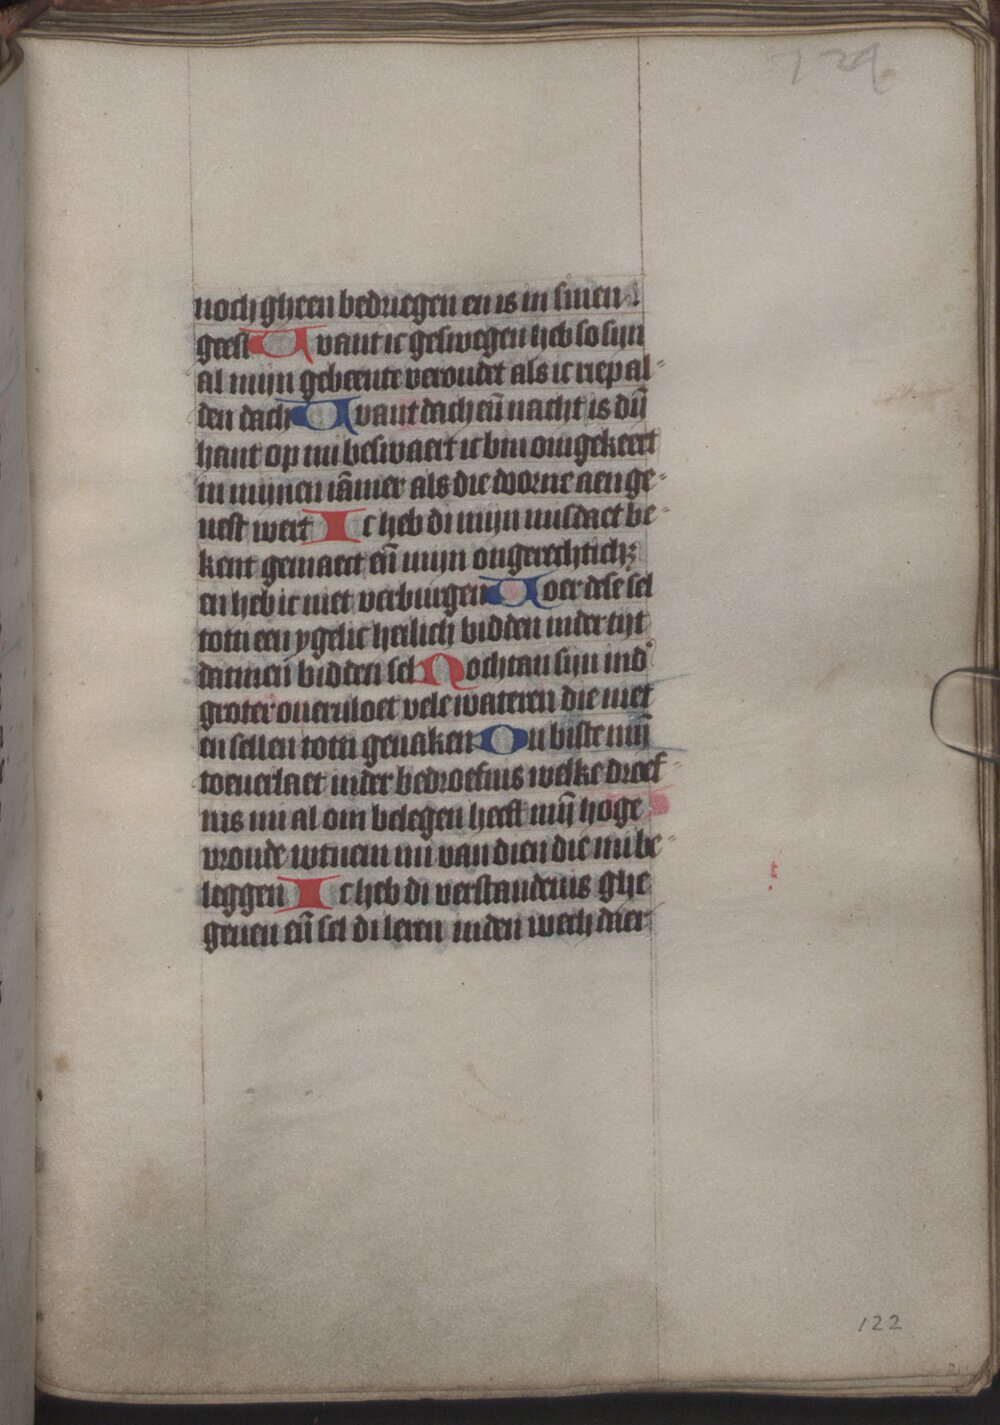 729
noch gheen bedriegen en is in sinen
geest Want ic geswegen heb so sijn
al mijn gebeente veroudet als ic riep al-
den dach Want dach eñ nacht is dij̄
hant op mi beswaert ic bin omgekeert
in mijnen iāmer als die doorne aen ge-
uest wert Ic heb di mijn misdaet be-
kent gemaect eñ mijn ongerechtichꝫ
en heb ic niet verburgen Uoer dese sel
totti een ygelic heilich bidden inder tijt
datmen bidden sel Nochtan sijn ind'
groter oueruloet vele wateren die niet
en sellen totti genaken Du biste mij̄
toeuerlaet inder bedroefnis welke droef-
nis mi al om belegen heeft mij̄ hoge
vroude wtnem mi van dien die mi be-
leggen Ic heb di verstandenis ghe
geuen eñ sel di leren inden wech daer
122